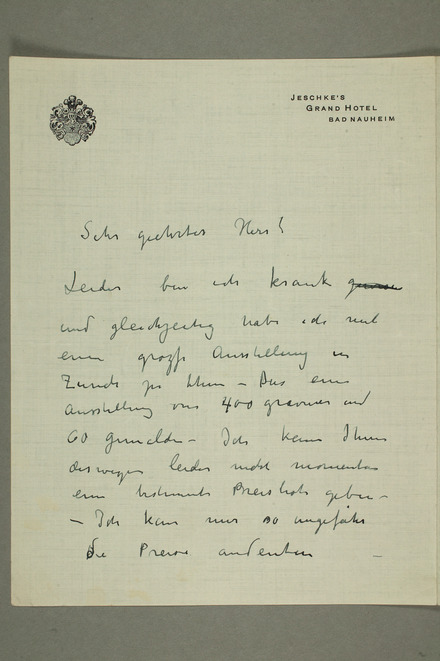 JESCHKE'S
GRAND HOTEL
BAD NAUHEIM
Sehr geehrter Herr!
Leider bin ich krank
und gleichzeitig habe ich mit
einer große Ausstellung in
Zürich zu thun – Das eine
Ausstellung von 400 gravures und
60 gemälde – Ich kann Ihnen
deswegen leider nicht momentan
eine Preisliste geben –
– Ich kann nur so ungefähr
die Preise andeuten –